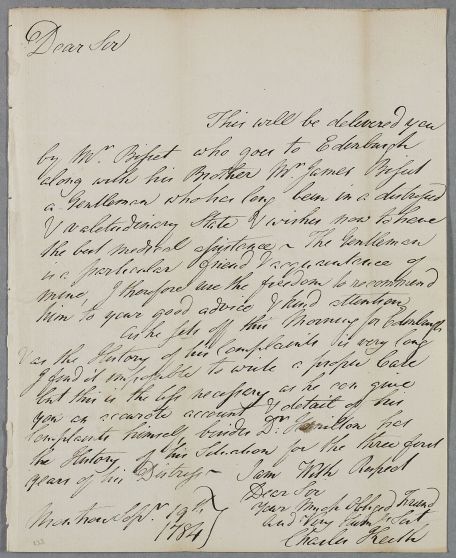 Dear Sir
This will be delivered you
by Mr. Bisset who goes to Edinburgh
along with his Brother Mr James Bisset
a Gentleman who has long been in a distressed
& valetudinary State & wishes now to have
the best medical assistance ~ The Gentleman
is a particular friend & acquaintance of
mine, I therefore use the freedom to recommend
him to your good advice & kind attention
as he sets off this Morning for Edinburgh
& as the History of his Complaints is very long
I find it impossible to write a proper Case
but this is the less necessary as he can give
you an accurate account & detail of his
complaints himself, besides Dr. Hamilton has
the History of his Situation for the three first
years of his Distress ~
I am With Respect
Dear Sir
your Much Obliged Friend
and Very Hum. Servt
Charles Keith
Montrose Sepr. 19th
1784